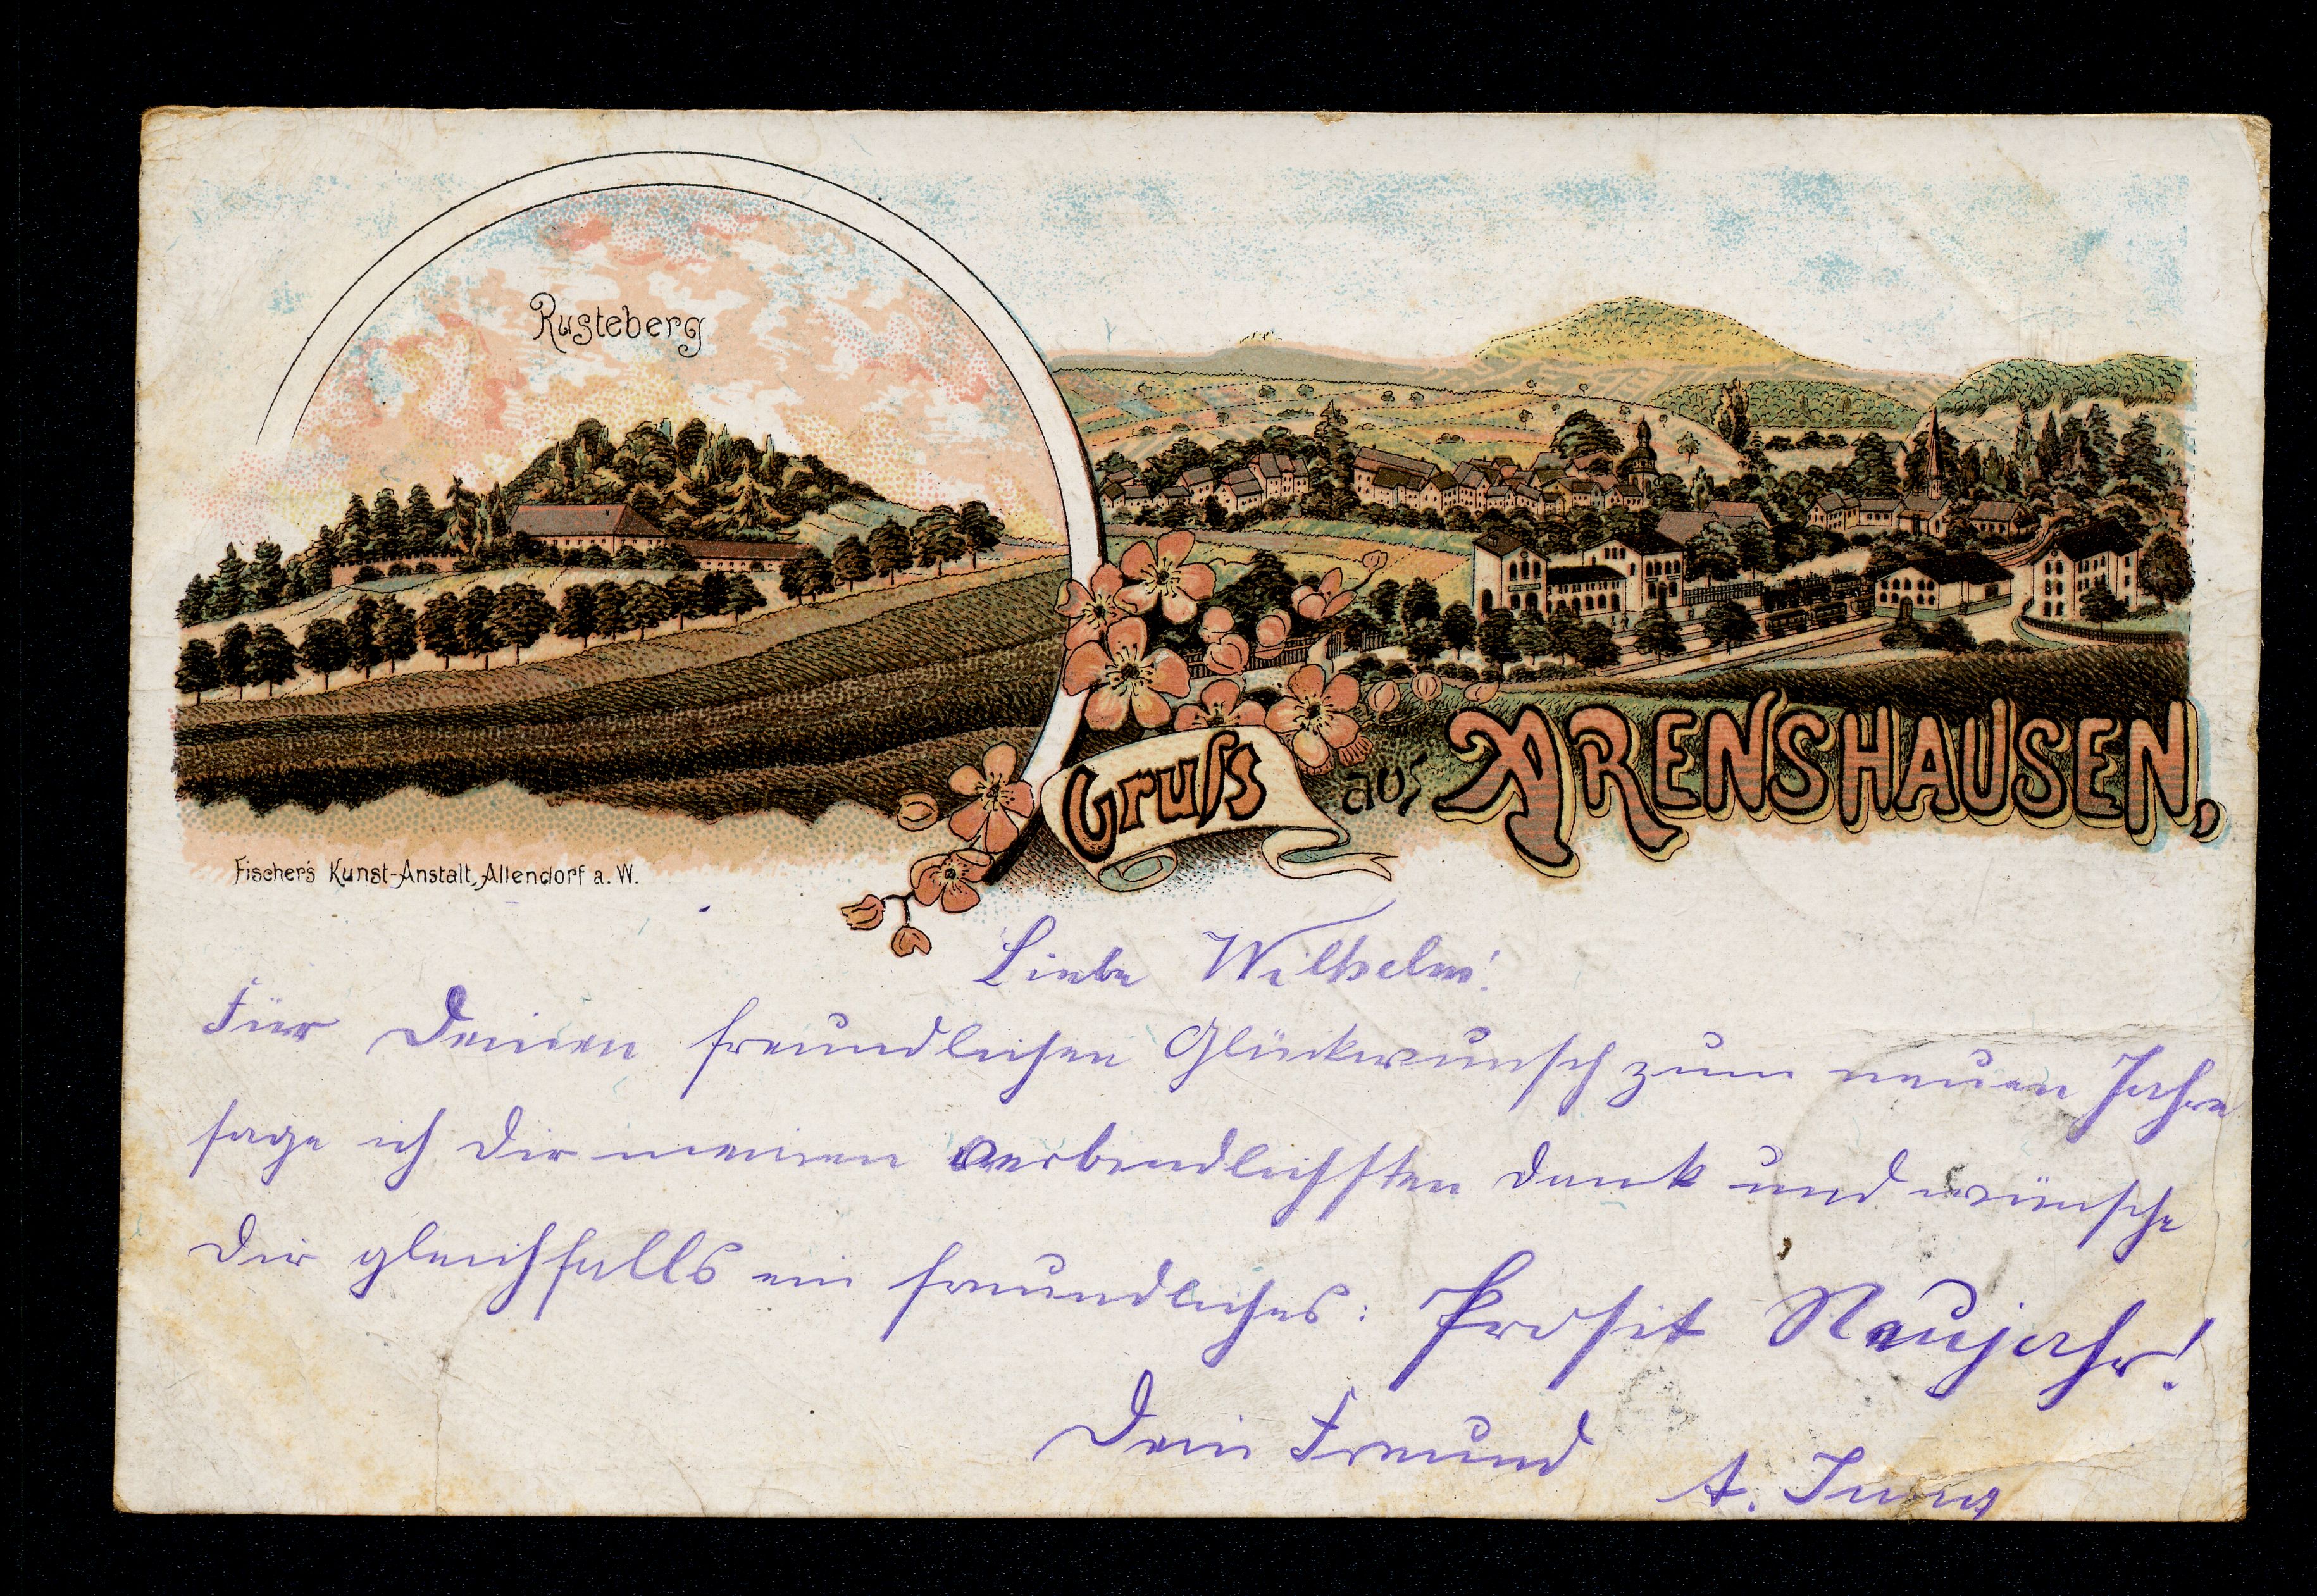 Rusteberg
Gruſs aus ARENSHAUSEN,
Fischer's Kunst-Anstalt, Allendorf a. W.
Liebe Wilhelm!
Für Deinen freundlichen Glückwunsch zum neuen Jahre
sage ich Dir meinen verbindlichsten Dank und wünsche
Dir gleichfalls ein freundliches: Prosit Neujahr!
Dein Freund
A. Jung